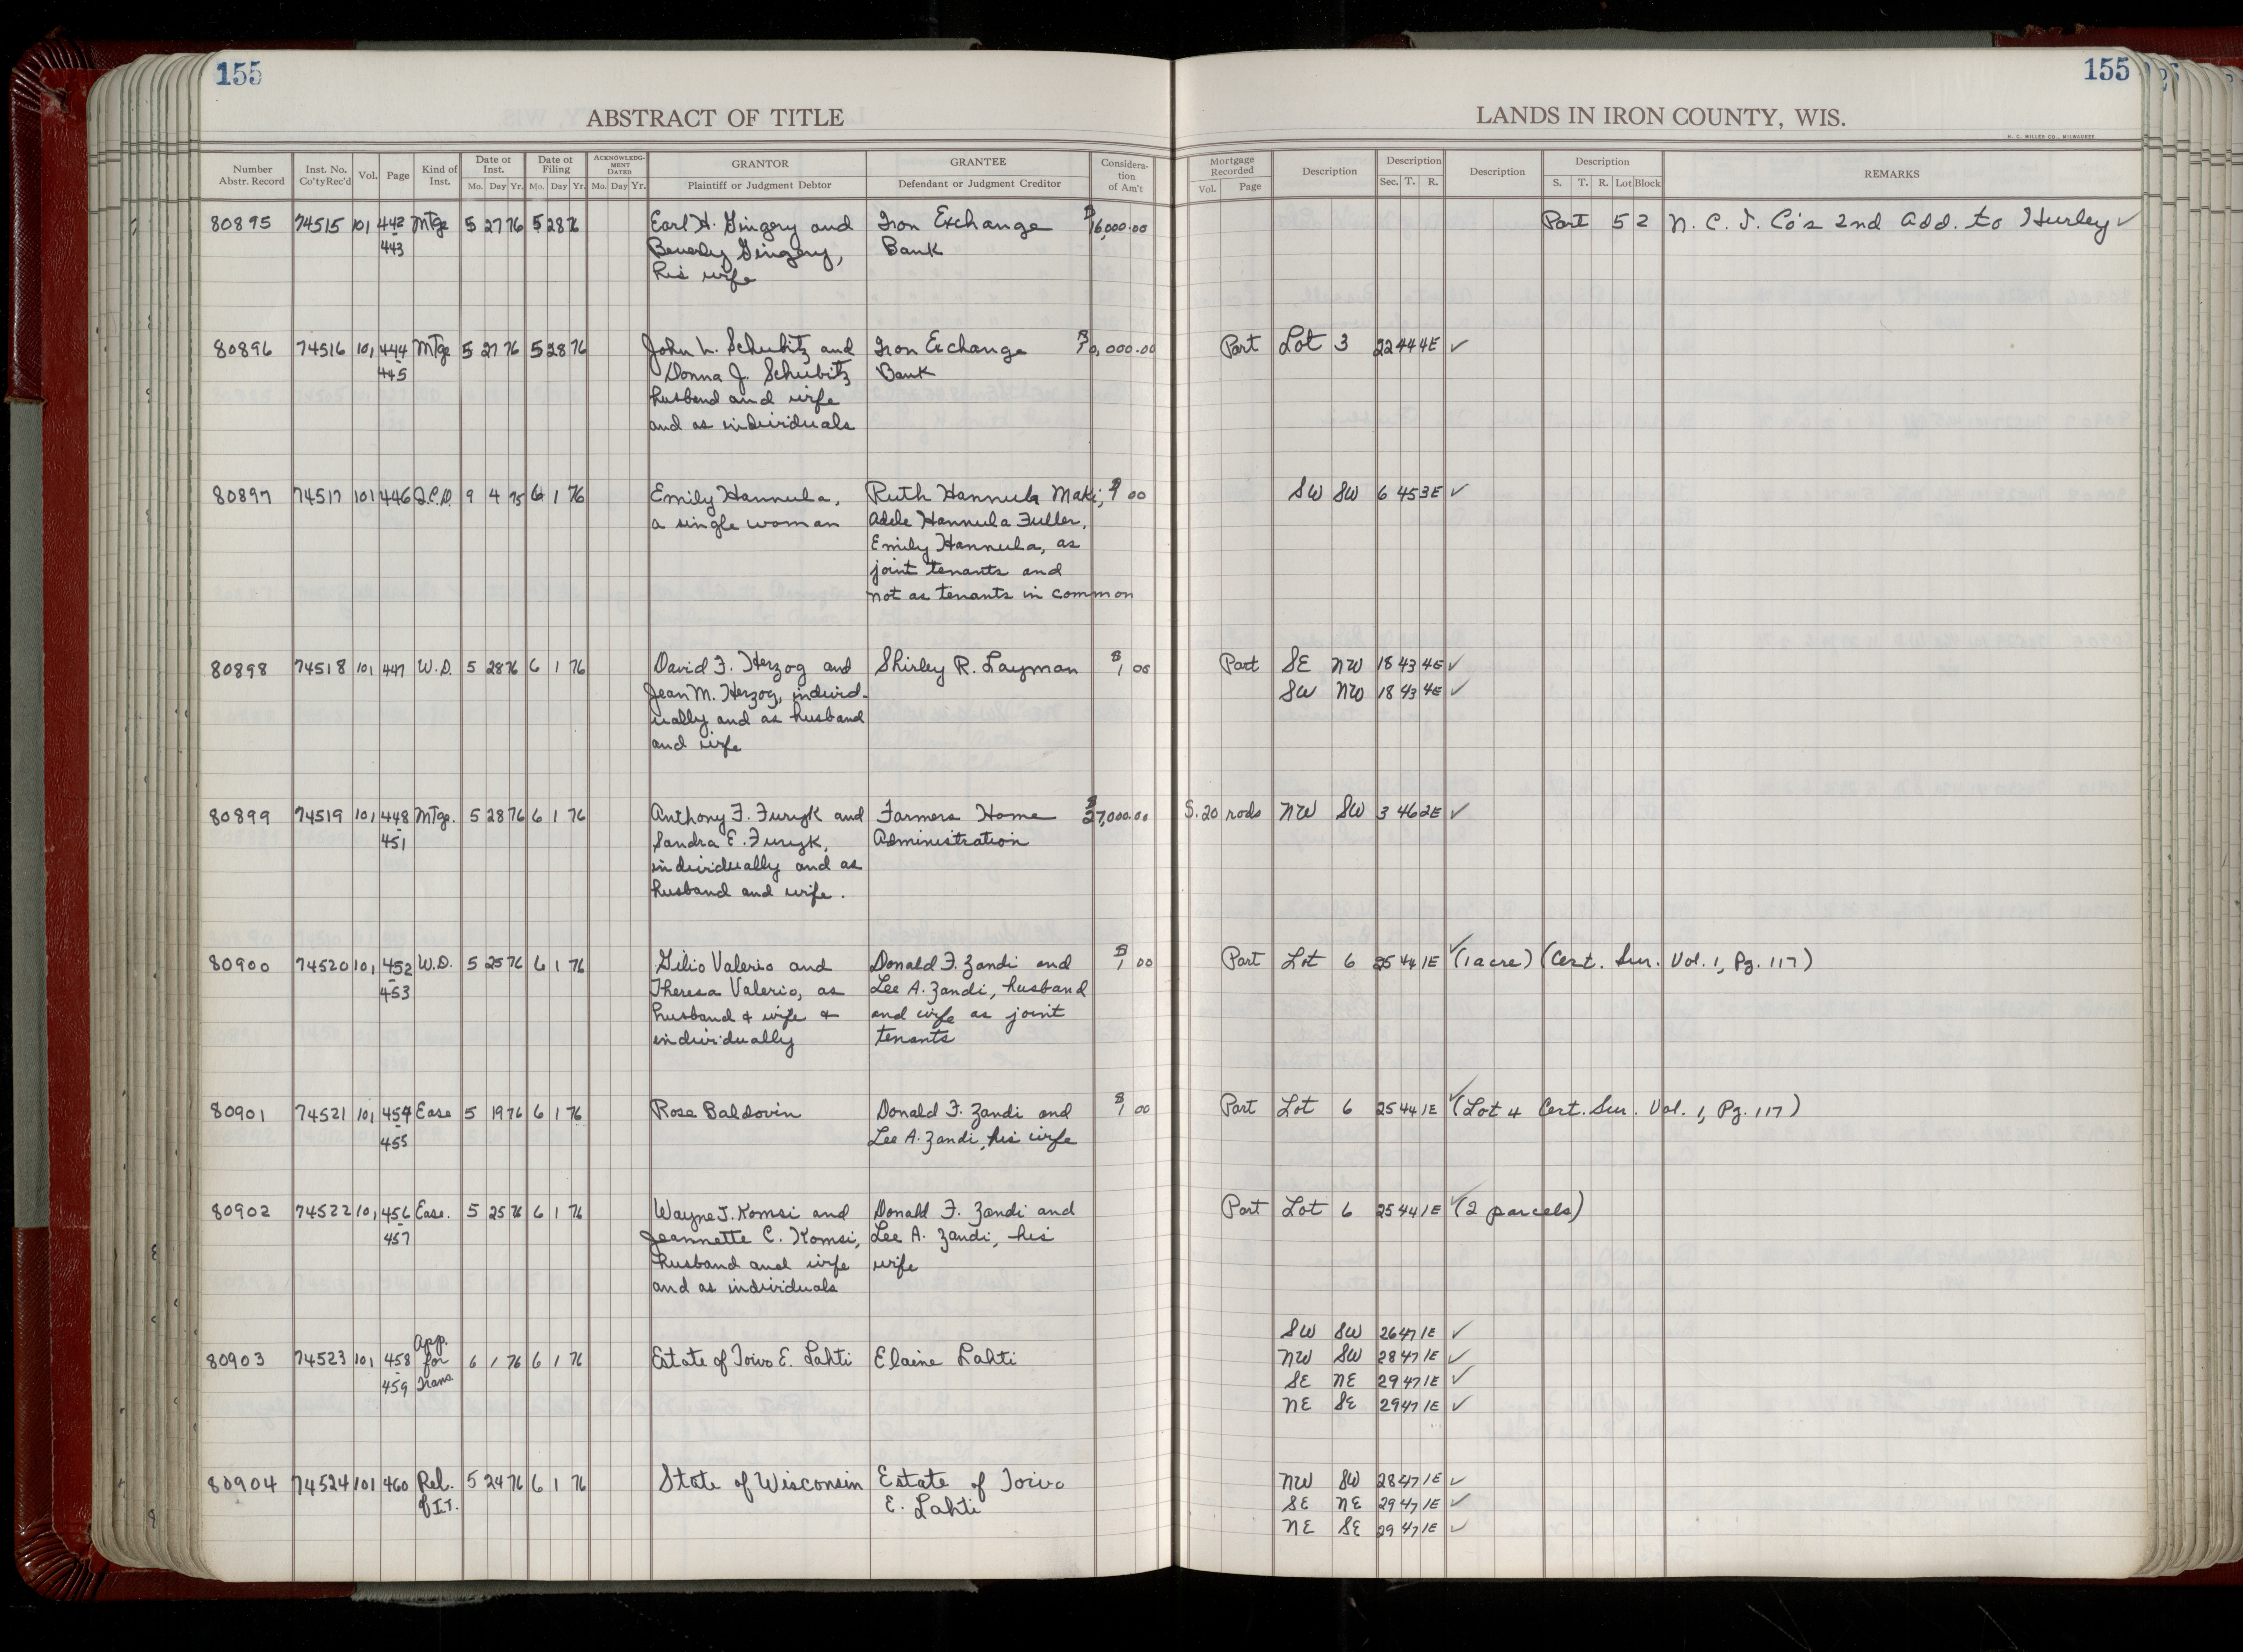 155
155
ABSTRACT OF TITLE
LANDS IN IRON COUNTY, WIS.
H. C. MILLER CO., MILWAUKEE
Number Abstr. Record | Inst. No. Co'ty Rec'd | Vol. | Page | Kind of Inst. | Date of Inst. Mo. Day Yr. | Date of Filing Mo. Day Yr. | ACKNOWLEDGMENT DATED Mo. Day Yr. | GRANTOR Plaintiff or Judgment Debtor | GRANTEE Defendant or Judgment Creditor | Consideration of Am't | Mortgage Recorded Vol. Page | Description | Description Sec. T. R. | Description | Description S. T. R. Lot Block | REMARKS
80895 74515 101 442 Mtge 5 27 76 5 28 76 Earl H. Gingery and Iron Exchange $16,000.00 Part 5 2 N. C. I. Co's 2nd Add. to Hurley ✓
443 Beverly Gingery, Bank
his wife
80896 74516 101 444 Mtge 5 27 76 5 28 76 John L. Schubitz and Iron Exchange $10,000.00 Part Lot 3 22 44 4E ✓
445 Donna J. Schubitz Bank
husband and wife
and as individuals
80897 74517 101 446 Q.C.D. 9 4 75 6 1 76 Emily Hannula, Ruth Hannula Maki, $1 00 SW SW 6 45 3E ✓
a single woman Adele Hannula Fuller,
Emily Hannula, as
joint tenants and
not as tenants in common
80898 74518 101 447 W.D. 5 28 76 6 1 76 David F. Herzog and Shirley R. Layman $1 00 Part SE NW 18 43 4E ✓
Jean M. Herzog, individ- SW NW 18 43 4E ✓
ually and as husband
and wife
80899 74519 101 448 Mtge. 5 28 76 6 1 76 Anthony F. Furyk and Farmers Home $27,000.00 S. 20 rods NW SW 3 46 2E ✓
451 Sandra E. Furyk, Administration
individually and as
husband and wife.
80900 74520 101 452 W.D. 5 25 76 6 1 76 Gilio Valerio and Donald F. Zandi and $1 00 Part Lot 6 25 44 1E ✓ (1 acre) (Cert. Sur. Vol. 1, Pg. 117)
453 Theresa Valerio, as Lee A. Zandi, husband
husband & wife & and wife as joint
individually tenants
80901 74521 101 454 Ease 5 19 76 6 1 76 Rose Baldovin Donald F. Zandi and $1 00 Part Lot 6 25 44 1E ✓ (Lot 4 Cert. Sur. Vol. 1, Pg. 117)
455 Lee A. Zandi, his wife
80902 74522 101 456 Ease. 5 25 76 6 1 76 Wayne J. Komsi and Donald F. Zandi and Part Lot 6 25 44 1E ✓ (2 parcels)
457 Jeannette C. Komsi, Lee A. Zandi, his
husband and wife wife
and as individuals
SW SW 26 47 1E ✓
App.
80903 74523 101 458 for 6 1 76 6 1 76 Estate of Toivo E. Lahti Elaine Lahti NW SW 28 47 1E ✓
459 Trans SE NE 29 47 1E ✓
NE SE 29 47 1E ✓
80904 74524 101 460 Rel. 5 24 76 6 1 76 State of Wisconsin Estate of Toivo NW SW 28 47 1E ✓
of I.T. E. Lahti SE NE 29 47 1E ✓
NE SE 29 47 1E ✓